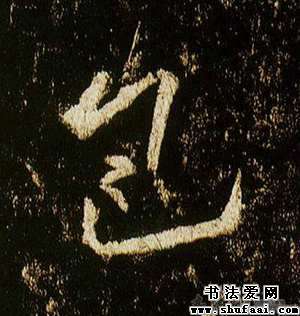 包
书法爱网
www.shufaai.com